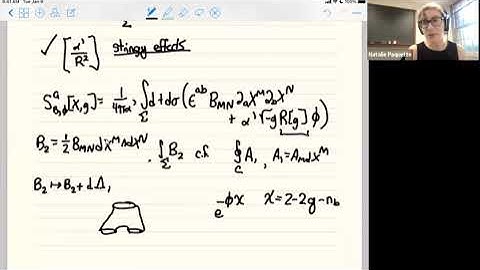 9:41 AM Tue Jan 4
Natalie Paquette
2
✓ [α'/R²] stringy effects
S^a_{B,φ}[X,g] = 1/4πα' ∫_Σ dτdσ (ε^{ab} B_{MN} ∂_a X^M ∂_b X^N
+ α' √-g R[g] φ)
B_2 = 1/2 B_{MN} dX^M ∧ dX^N . ∫_Σ B_2 c.f. ∮_C A_1, A_1 = A_M dX^M
B_2 ↦ B_2 + dΛ_1
e^{-φχ} χ = 2-2g-n_b